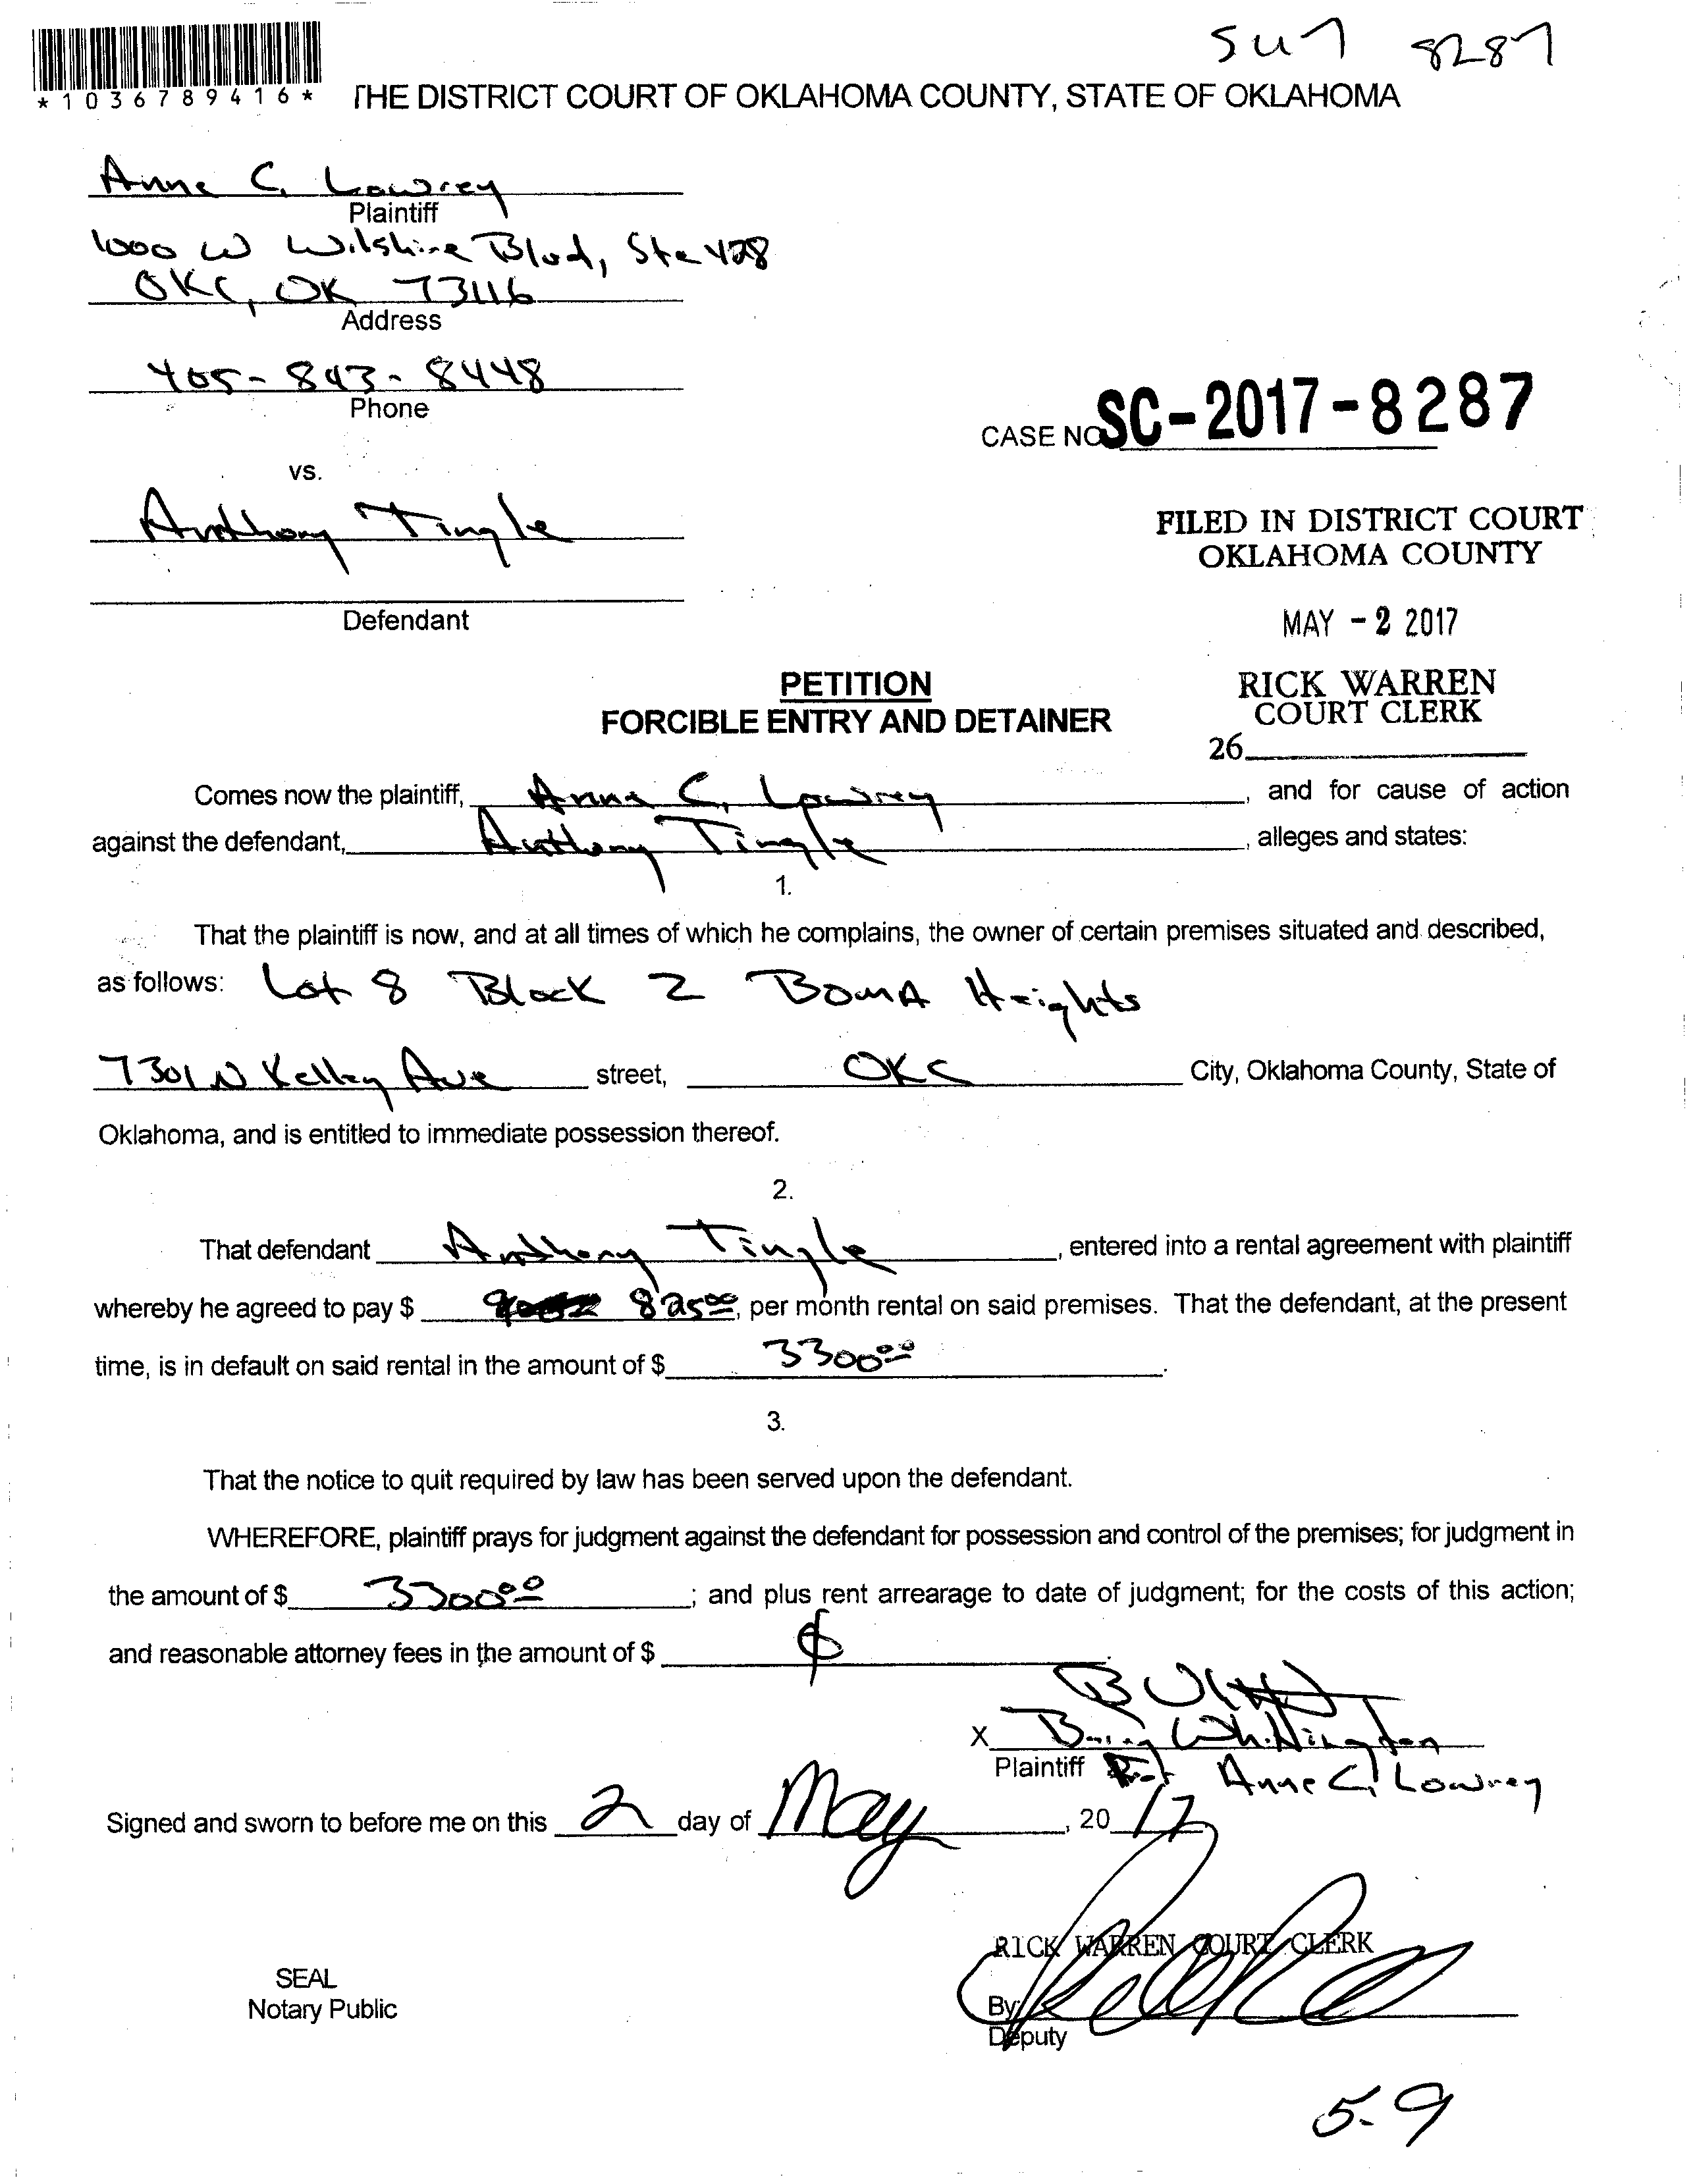 SU7 8287
*1036789416*
THE DISTRICT COURT OF OKLAHOMA COUNTY, STATE OF OKLAHOMA
Anne C. Lowrey
Plaintiff
1000 W Wilshire Blvd, Ste 428
OKC, OK 73116
Address
405-843-8448
Phone
CASE NO SC-2017-8287
vs.
Anthony Tingle
FILED IN DISTRICT COURT
OKLAHOMA COUNTY
Defendant
MAY -2 2017
PETITION
FORCIBLE ENTRY AND DETAINER
RICK WARREN
COURT CLERK
26
Comes now the plaintiff, Anna C. Lowrey, and for cause of action
against the defendant, Anthony Tingle, alleges and states:
1.
That the plaintiff is now, and at all times of which he complains, the owner of certain premises situated and described,
as follows: Lot 8 Block 2 BomA Heights
7301 N Kelley Ave street, OKC City, Oklahoma County, State of
Oklahoma, and is entitled to immediate possession thereof.
2.
That defendant Anthony Tingle, entered into a rental agreement with plaintiff
whereby he agreed to pay $ 825.00, per month rental on said premises. That the defendant, at the present
time, is in default on said rental in the amount of $ 3300.00.
3.
That the notice to quit required by law has been served upon the defendant.
WHEREFORE, plaintiff prays for judgment against the defendant for possession and control of the premises; for judgment in
the amount of $ 3300.00; and plus rent arrearage to date of judgment; for the costs of this action;
and reasonable attorney fees in the amount of $
X Whittington
Plaintiff Anne C. Lowrey
Signed and sworn to before me on this 2 day of May, 20 17
RICK WARREN COURT CLERK
SEAL
Notary Public
By:
Deputy
5-9